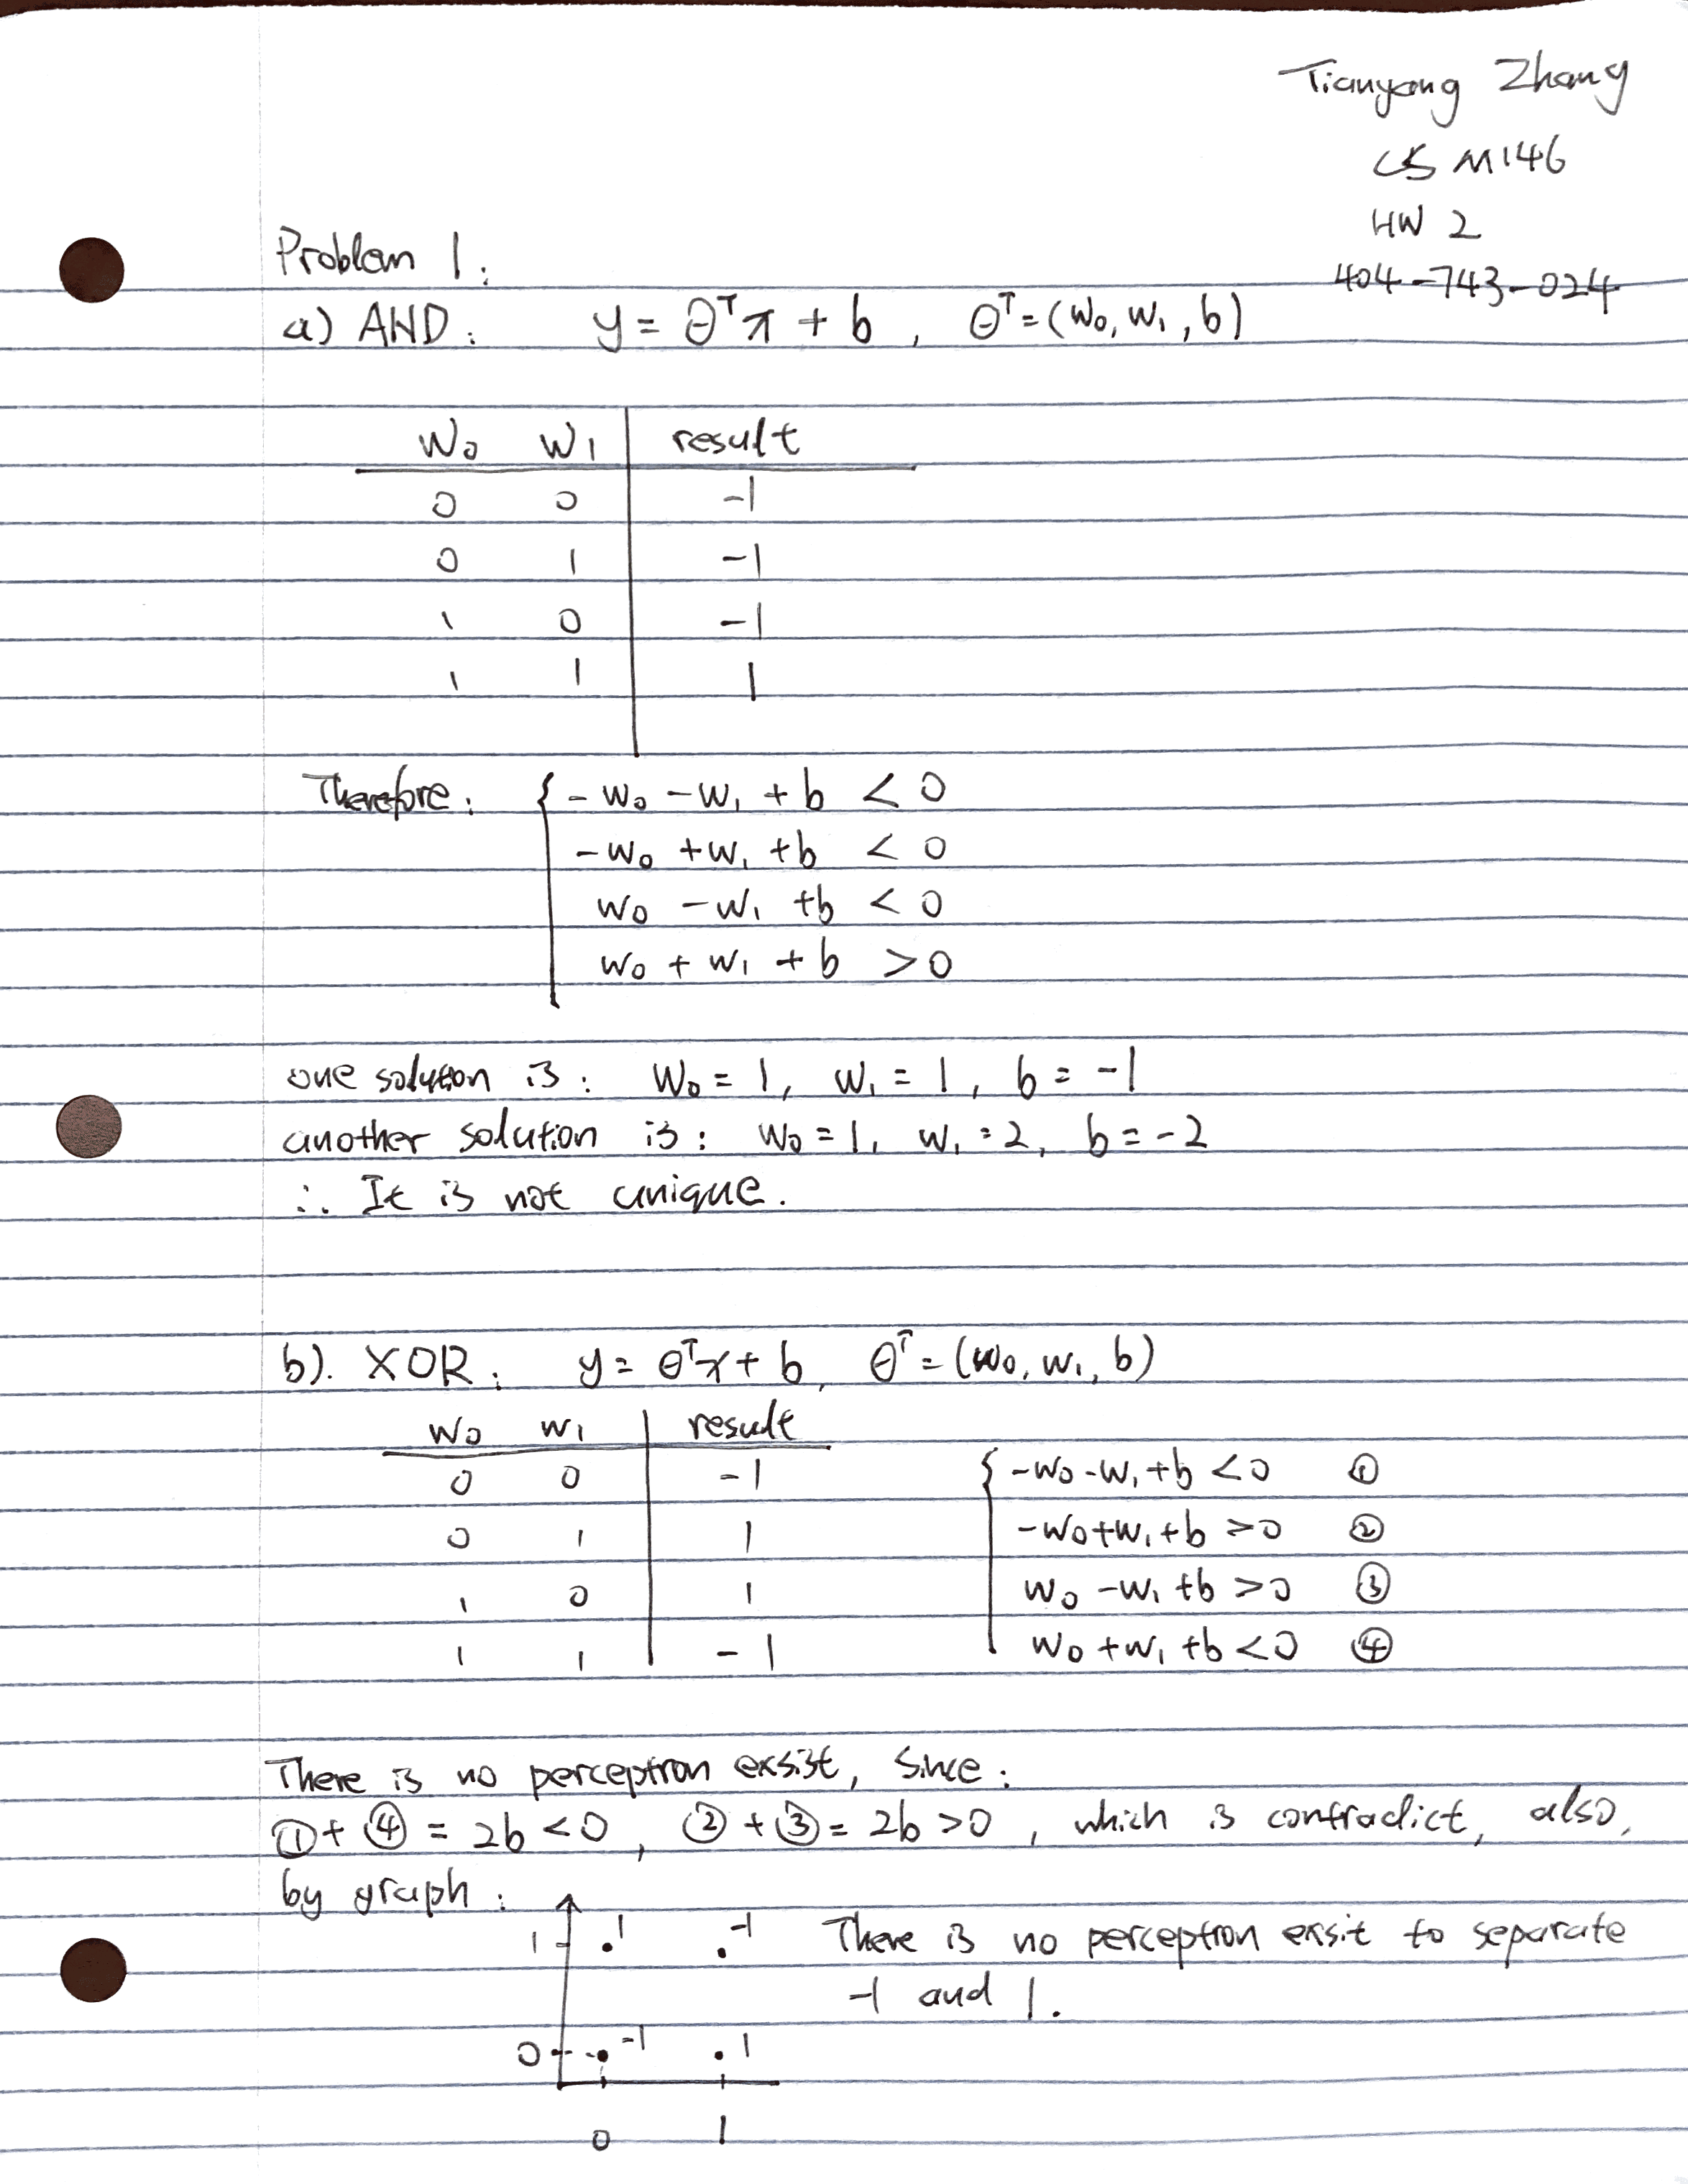 Tianyang Zhang
CS M146
HW 2
404-743-024
Problem 1:
a) AND: y = θᵀx + b, θᵀ = (w₀, w₁, b)
w₀ w₁ result
0 0 -1
0 1 -1
1 0 -1
1 1 1
Therefore: { -w₀ - w₁ + b < 0
-w₀ + w₁ + b < 0
w₀ - w₁ + b < 0
w₀ + w₁ + b > 0
one solution is: w₀ = 1, w₁ = 1, b = -1
another solution is: w₀ = 1, w₁ = 2, b = -2
∴ It is not unique.
b). XOR: y = θᵀx + b, θᵀ = (w₀, w₁, b)
w₀ w₁ result
0 0 -1 { -w₀ - w₁ + b < 0 ①
0 1 1 -w₀ + w₁ + b > 0 ②
1 0 1 w₀ - w₁ + b > 0 ③
1 1 -1 w₀ + w₁ + b < 0 ④
There is no perceptron exsist, since:
① + ④ = 2b < 0, ② + ③ = 2b > 0, which is contradict, also,
by graph:
1 1 -1 There is no perceptron exsit to separate
-1 and 1.
0 -1 1
0 1